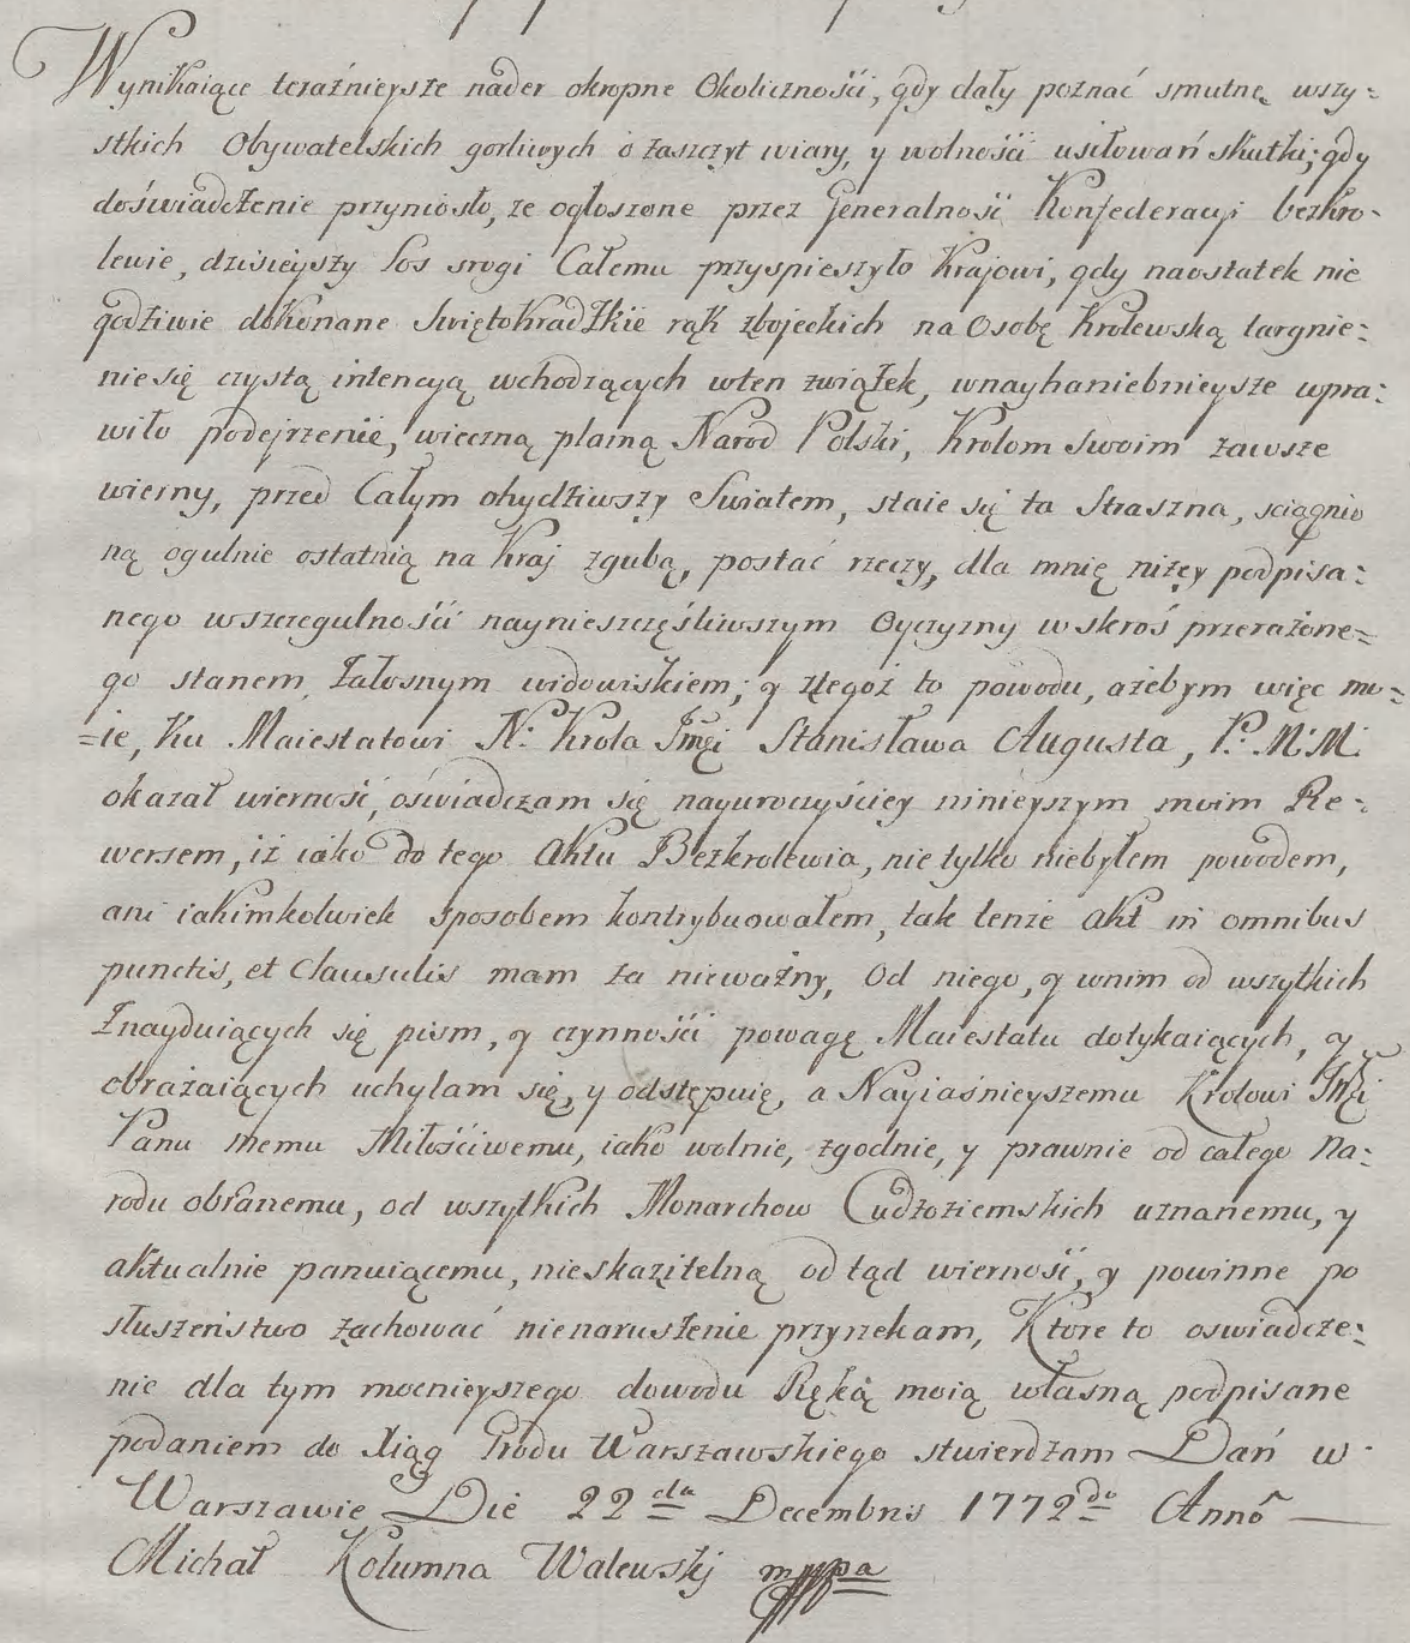 Wynikaiące teraźnieysze nader okropne Okolicznośći, gdy dały poznać smutne wszy=
stkich Obywatelskich gorliwych o zaszczyt wiary, y wolnośći usiłowań skutki; gdy
doświadczenie przyniosło, ze ogłoszone przez Generalność Konfederacyi bezkro=
lewie, dzisieyszy los srogi Całemu przyspieszyło Krajowi, gdy naostatek nie
godziwie dokonane Swiętokradzkie rąk zbojeckich na Osobę Krolewską targnie=
nie się czystą intencyą wchodzących wten związek, wnayhaniebnieysze wpra=
wiło podejrzenie, wieczną plamą Narod Polski, Krolom Swoim zawsze
wierny, przed Całym ohydziwszy Swiatem, staie się ta Straszna, sciągnio
ną ogulnie ostatnią na Kraj zgubą, postać rzeczy, dla mnię niżey podpisa=
nego wszczegulnośći naynieszczęśliwszym Oyczyzny wskroś przerażone=
go stanem, Załosnym widowiskiem; y ztegoż to powodu, ażebym więc mo=
=ie, Ku Maiestatowi N: Krola Jmći Stanisława Augusta, P: M: M:
okazał wierność, oświadczam się nayuroczyściey ninieyszym moim Re=
wersem, iż iako do tego Aktu Bezkrolewia, nie tylko niebyłem powodem,
ani iakimkolwiek sposobem kontrybuowałem, tak tenże Akt in omnibus
punctis, et Clausulis mam za nieważny, Od niego, y wnim od wszytkich
Znayduiących się pism, y czynnośći powagę Maiestatu dotykaiących, y
obrażaiących uchylam się, y odstępuię, a Nayiaśnieyszemu Krolowi Jmći
Panu memu Miłośćiwemu, iako wolnie, zgodnie, y prawnie od całego Na=
rodu obranemu, od wszytkich Monarchow Cudzoziemskich uznanemu, y
aktualnie panuiącemu, nieskazitelną od tąd wierność, y powinne po
słuszeństwo zachować nienaruszenie przyrzekam, Ktore to oswiadcze=
nie dla tym mocnieyszego dowodu Ręką moią własną podpisane
podaniem do Xiąg Grodu Warszawskiego stwierdzam Dań w
Warszawie Die 22da Decembris 1772do Anno
Michał Kolumna Walewskj mppa